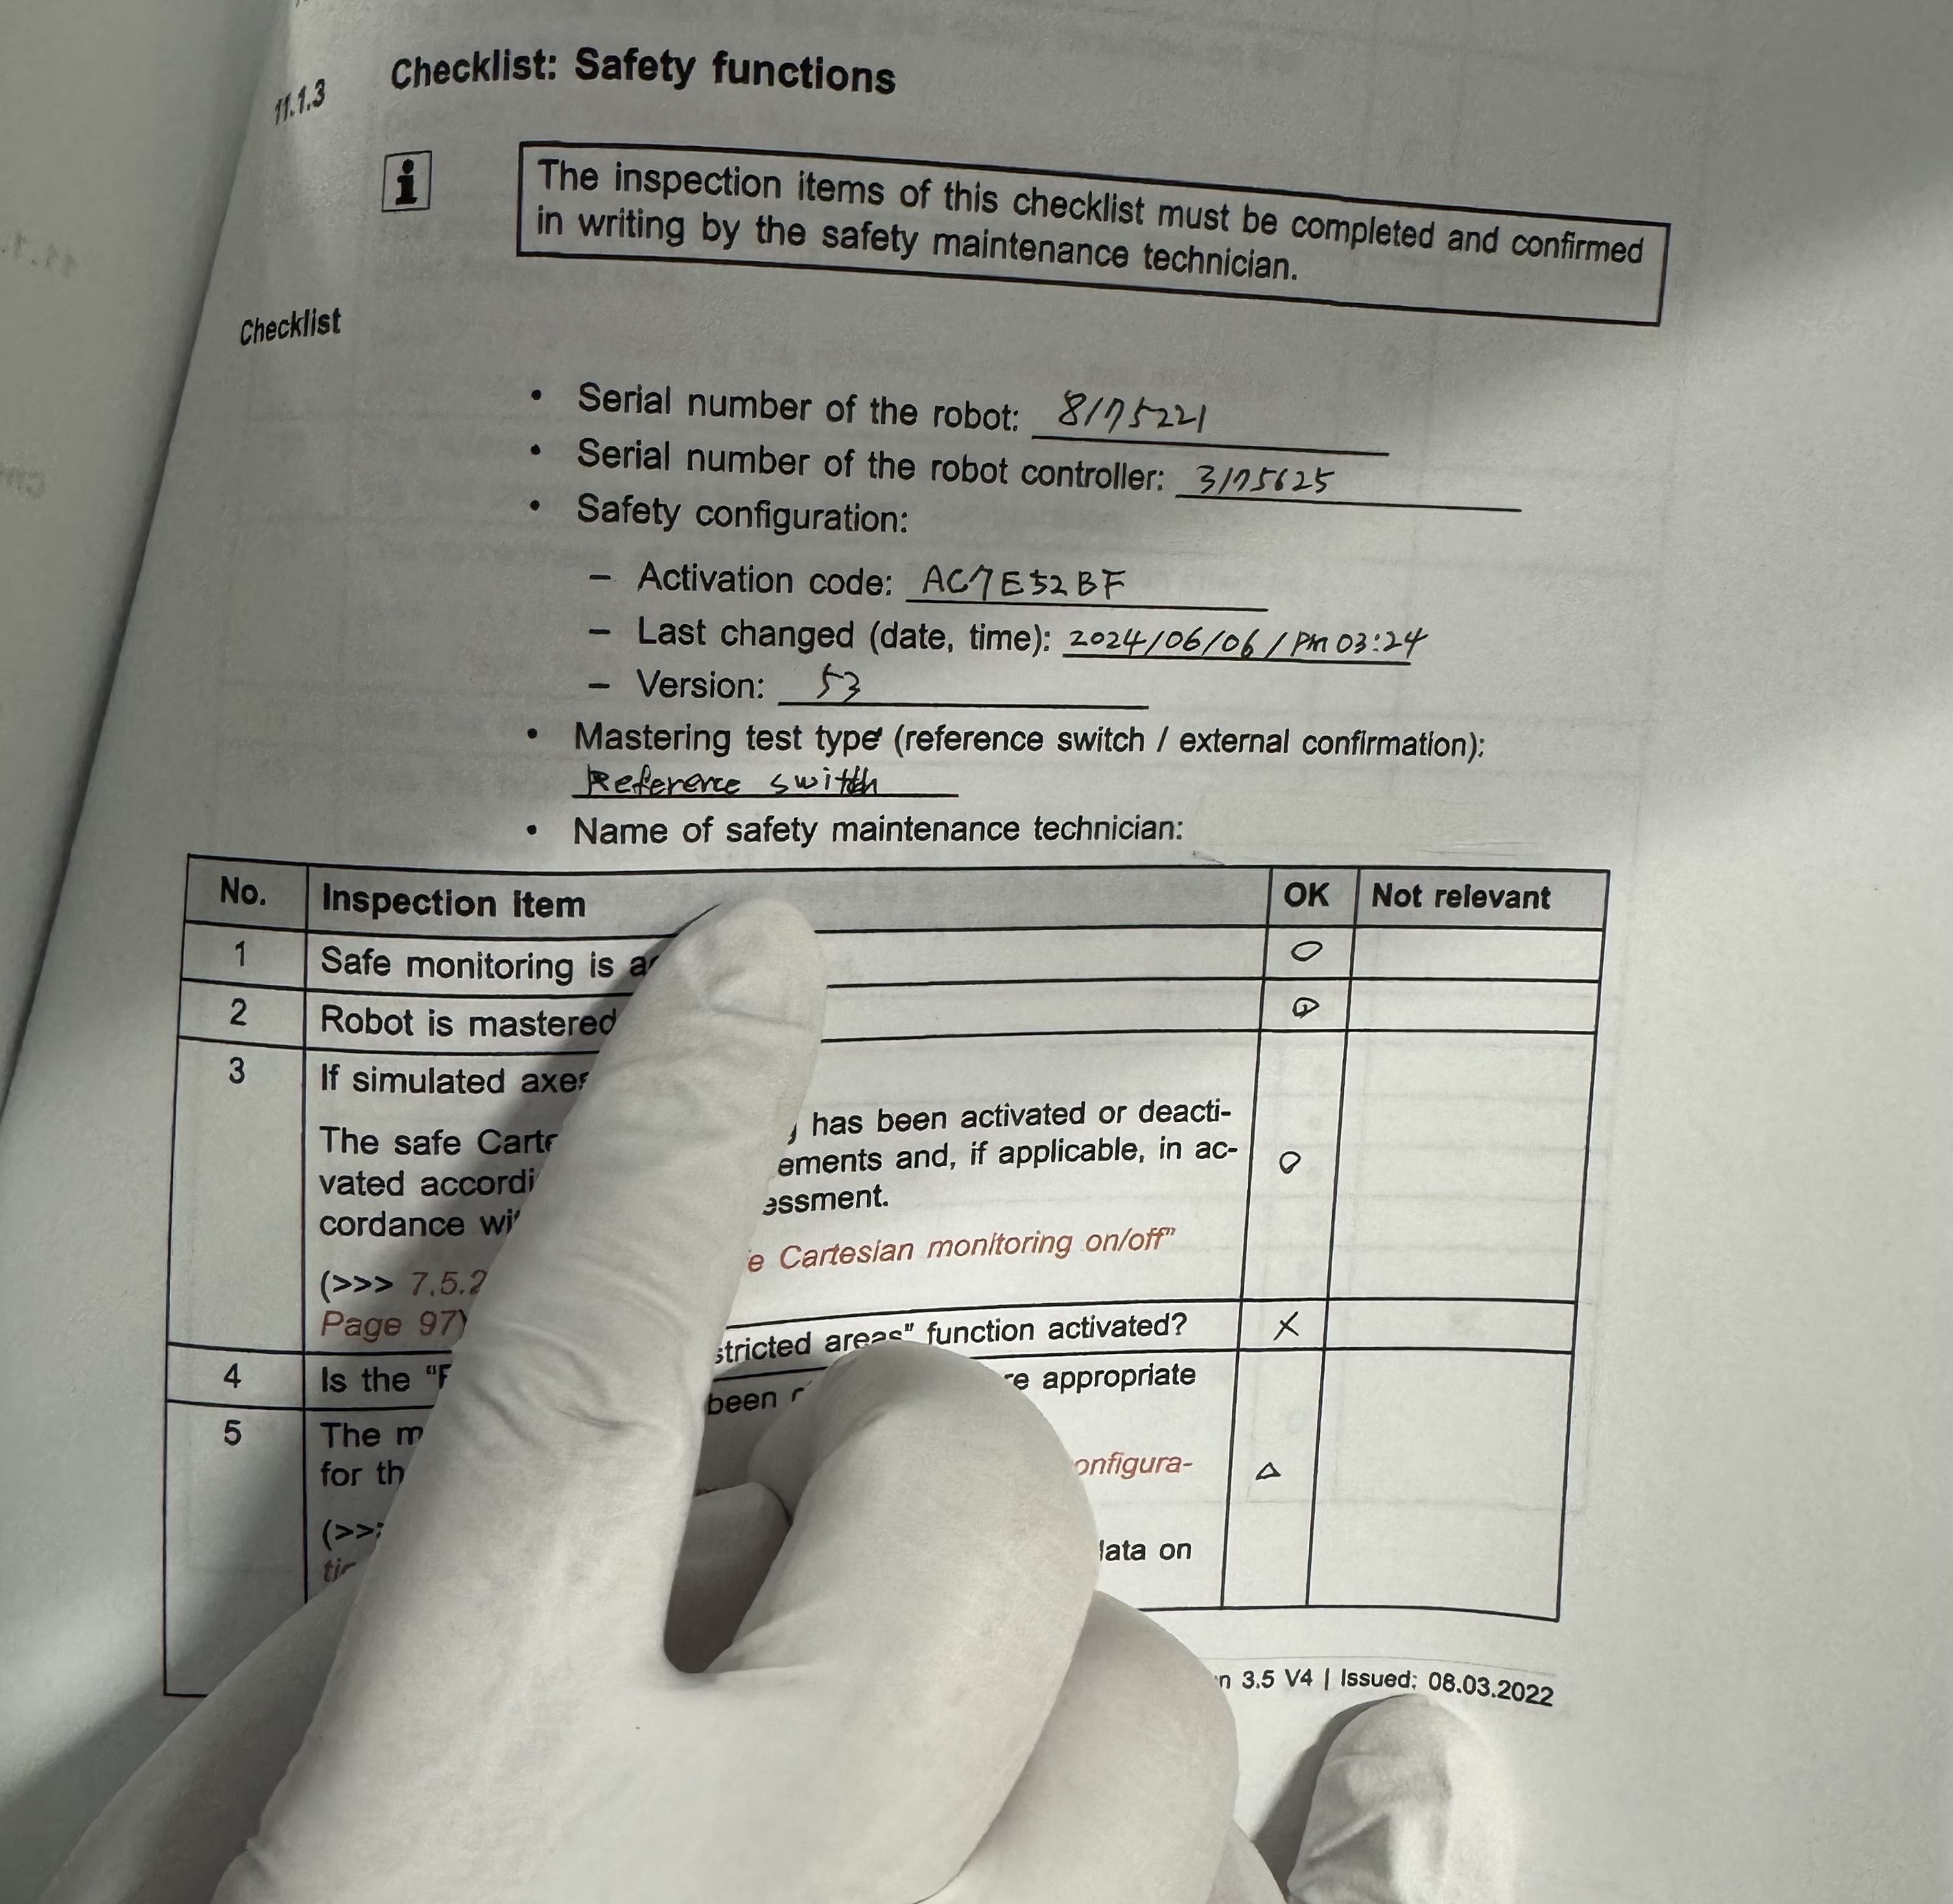 11.1.3 Checklist: Safety functions
i
The inspection items of this checklist must be completed and confirmed
in writing by the safety maintenance technician.
Checklist
• Serial number of the robot: 8175221
• Serial number of the robot controller: 3175625
• Safety configuration:
– Activation code: AC7E52BF
– Last changed (date, time): 2024/06/06/PM 03:24
– Version: 53
• Mastering test type (reference switch / external confirmation):
Reference switch
• Name of safety maintenance technician:
No. Inspection item OK Not relevant
1 Safe monitoring is O
2 Robot is mastered O
3 If simulated axes
The safe has been activated or deacti-
vated ements and, if applicable, in ac- O
cordance essment.
(>>> 7.5.2 Cartesian monitoring on/off"
Page 97)
4 Is the stricted areas" function activated? X
5 The been appropriate
for
(>>> onfigura- △
data on
3.5 V4 | Issued: 08.03.2022